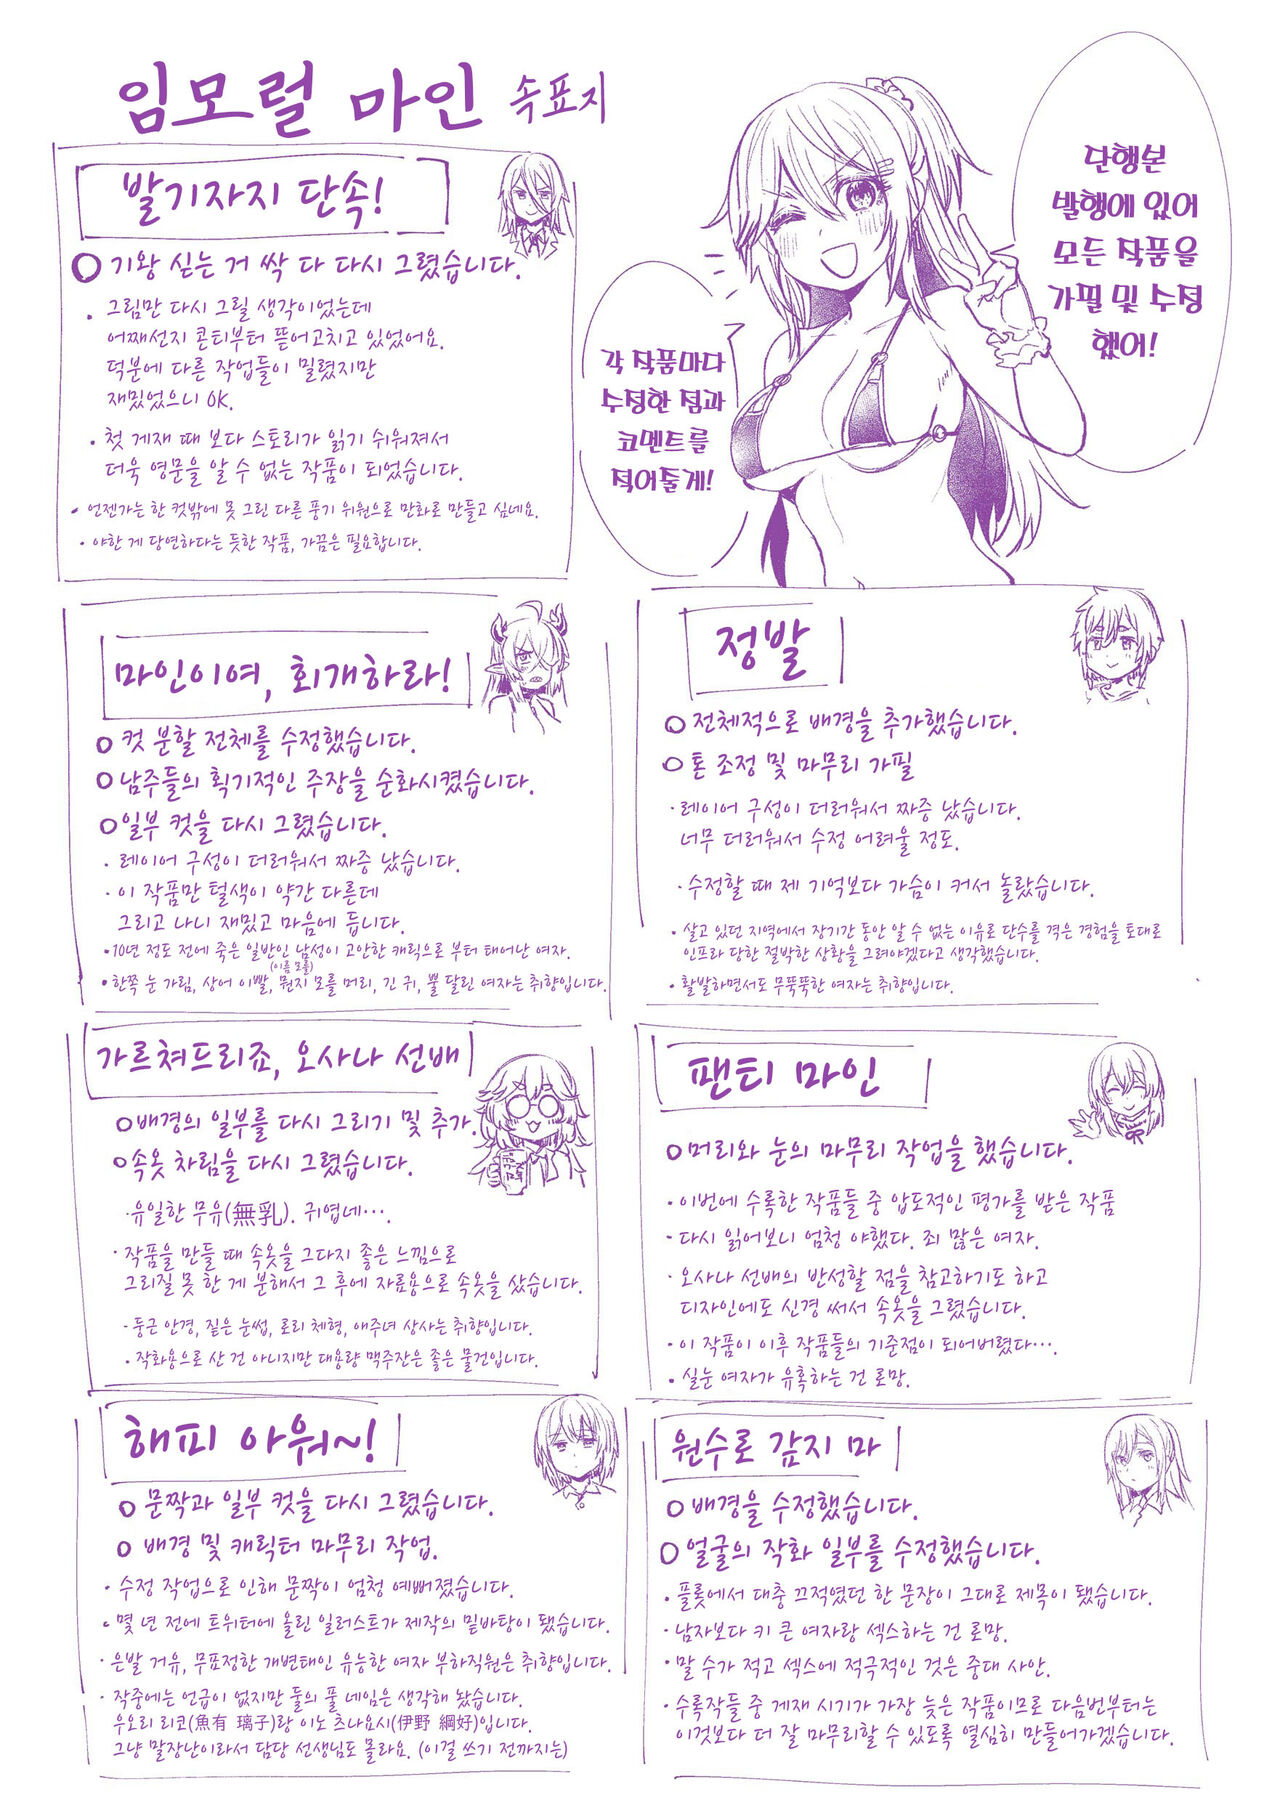 임모럴 마인 속표지
단행본
발행에 있어
모든 작품을
가필 및 수정
했어!
각 작품마다
수정한 점과
코멘트를
적어줄게!
발기자지 단속!
○ 기왕 싣는 거 싹 다 다시 그렸습니다.
· 그림만 다시 그릴 생각이었는데
어째선지 콘티부터 뜯어고치고 있었어요.
덕분에 다른 작업들이 밀렸지만
재밌었으니 OK.
· 첫 게재 때 보다 스토리가 읽기 쉬워져서
더욱 영문을 알 수 없는 작품이 되었습니다.
· 언젠가는 한 컷밖에 못 그린 다른 풍기 위원으로 만화로 만들고 싶네요.
· 야한 게 당연하다는 듯한 작품, 가끔은 필요합니다.
마인이여, 회개하라!
○ 컷 분할 전체를 수정했습니다.
○ 남주들의 획기적인 주장을 순화시켰습니다.
○ 일부 컷을 다시 그렸습니다.
· 레이어 구성이 더러워서 짜증 났습니다.
· 이 작품만 털색이 약간 다른데
그리고 나니 재밌고 마음에 듭니다.
· 10년 정도 전에 죽은 일반인 남성이 고안한 캐릭으로 부터 태어난 여자.
(이름 모를)
· 한쪽 눈 가림, 상어 이빨, 뭔지 모를 머리, 긴 귀, 뿔 달린 여자는 취향입니다.
정발
○ 전체적으로 배경을 추가했습니다.
○ 톤 조정 및 마무리 가필
· 레이어 구성이 더러워서 짜증 났습니다.
너무 더러워서 수정 어려울 정도.
· 수정할 때 제 기억보다 가슴이 커서 놀랐습니다.
· 살고 있던 지역에서 장기간 동안 알 수 없는 이유로 단수를 겪은 경험을 토대로
인프라 당한 절박한 상황을 그려야겠다고 생각했습니다.
· 활발하면서도 무뚝뚝한 여자는 취향입니다.
가르쳐드리죠, 오사나 선배
○ 배경의 일부를 다시 그리기 및 추가.
○ 속옷 차림을 다시 그렸습니다.
· 유일한 무유(無乳). 귀엽네….
· 작품을 만들 때 속옷을 그다지 좋은 느낌으로
그리질 못 한 게 분해서 그 후에 자료용으로 속옷을 샀습니다.
· 둥근 안경, 짙은 눈썹, 로리 체형, 애주녀 상사는 취향입니다.
· 작화용으로 산 건 아니지만 대용량 맥주잔은 좋은 물건입니다.
팬티 마인
○ 머리와 눈의 마무리 작업을 했습니다.
· 이번에 수록한 작품들 중 압도적인 평가를 받은 작품
· 다시 읽어보니 엄청 야했다. 죄 많은 여자.
· 오사나 선배의 반성할 점을 참고하기도 하고
디자인에도 신경 써서 속옷을 그렸습니다.
· 이 작품이 이후 작품들의 기준점이 되어버렸다….
· 실눈 여자가 유혹하는 건 로망.
해피 아워~!
○ 문짝과 일부 컷을 다시 그렸습니다.
○ 배경 및 캐릭터 마무리 작업.
· 수정 작업으로 인해 문짝이 엄청 예뻐졌습니다.
· 몇 년 전에 트위터에 올린 일러스트가 제작의 밑바탕이 됐습니다.
· 은발 거유, 무표정한 개변태인 유능한 여자 부하직원은 취향입니다.
· 작중에는 언급이 없지만 둘의 풀 네임은 생각해 놨습니다.
우오리 리코(魚有 璃子)랑 이노 츠나요시(伊野 綱好)입니다.
그냥 말장난이라서 담당 선생님도 몰라요. (이걸 쓰기 전까지는)
원수로 갚지 마
○ 배경을 수정했습니다.
○ 얼굴의 작화 일부를 수정했습니다.
· 플롯에서 대충 끄적였던 한 문장이 그대로 제목이 됐습니다.
· 남자보다 키 큰 여자랑 섹스하는 건 로망.
· 말 수가 적고 섹스에 적극적인 것은 중대 사안.
· 수록작들 중 게재 시기가 가장 늦은 작품이므로 다음번부터는
이것보다 더 잘 마무리할 수 있도록 열심히 만들어가겠습니다.